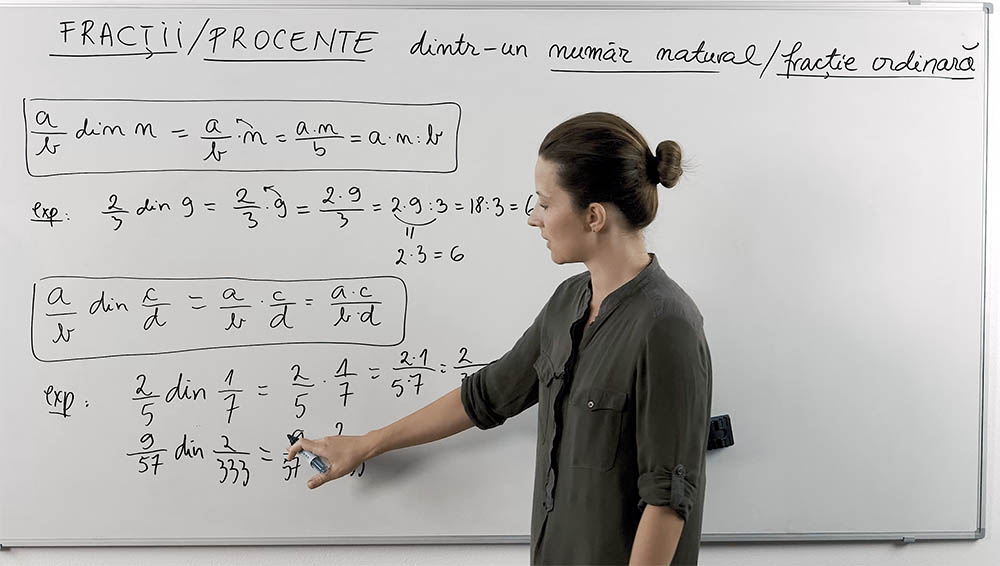 FRACȚII/PROCENTE dintr-un număr natural/fracție ordinară
a/b din n = a/b · n = a·n/b = a·n:b
exp: 2/3 din 9 = 2/3 · 9 = 2·9/3 = 2·9:3 = 18:3 =
2·3 = 6
a/b din c/d = a/b · c/d = a·c/b·d
exp: 2/5 din 1/7 = 2/5 · 1/7 = 2·1/5·7 = 2/
9/57 din 2/333 =